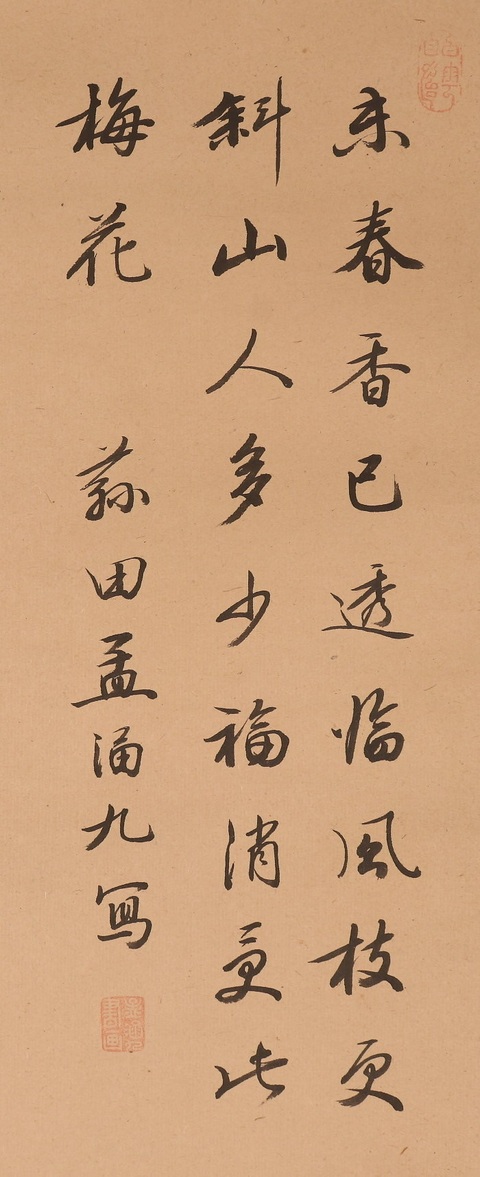 未春香已透临風枝更
斜山人多少福消受此
梅花 蓀田孟涌九寫